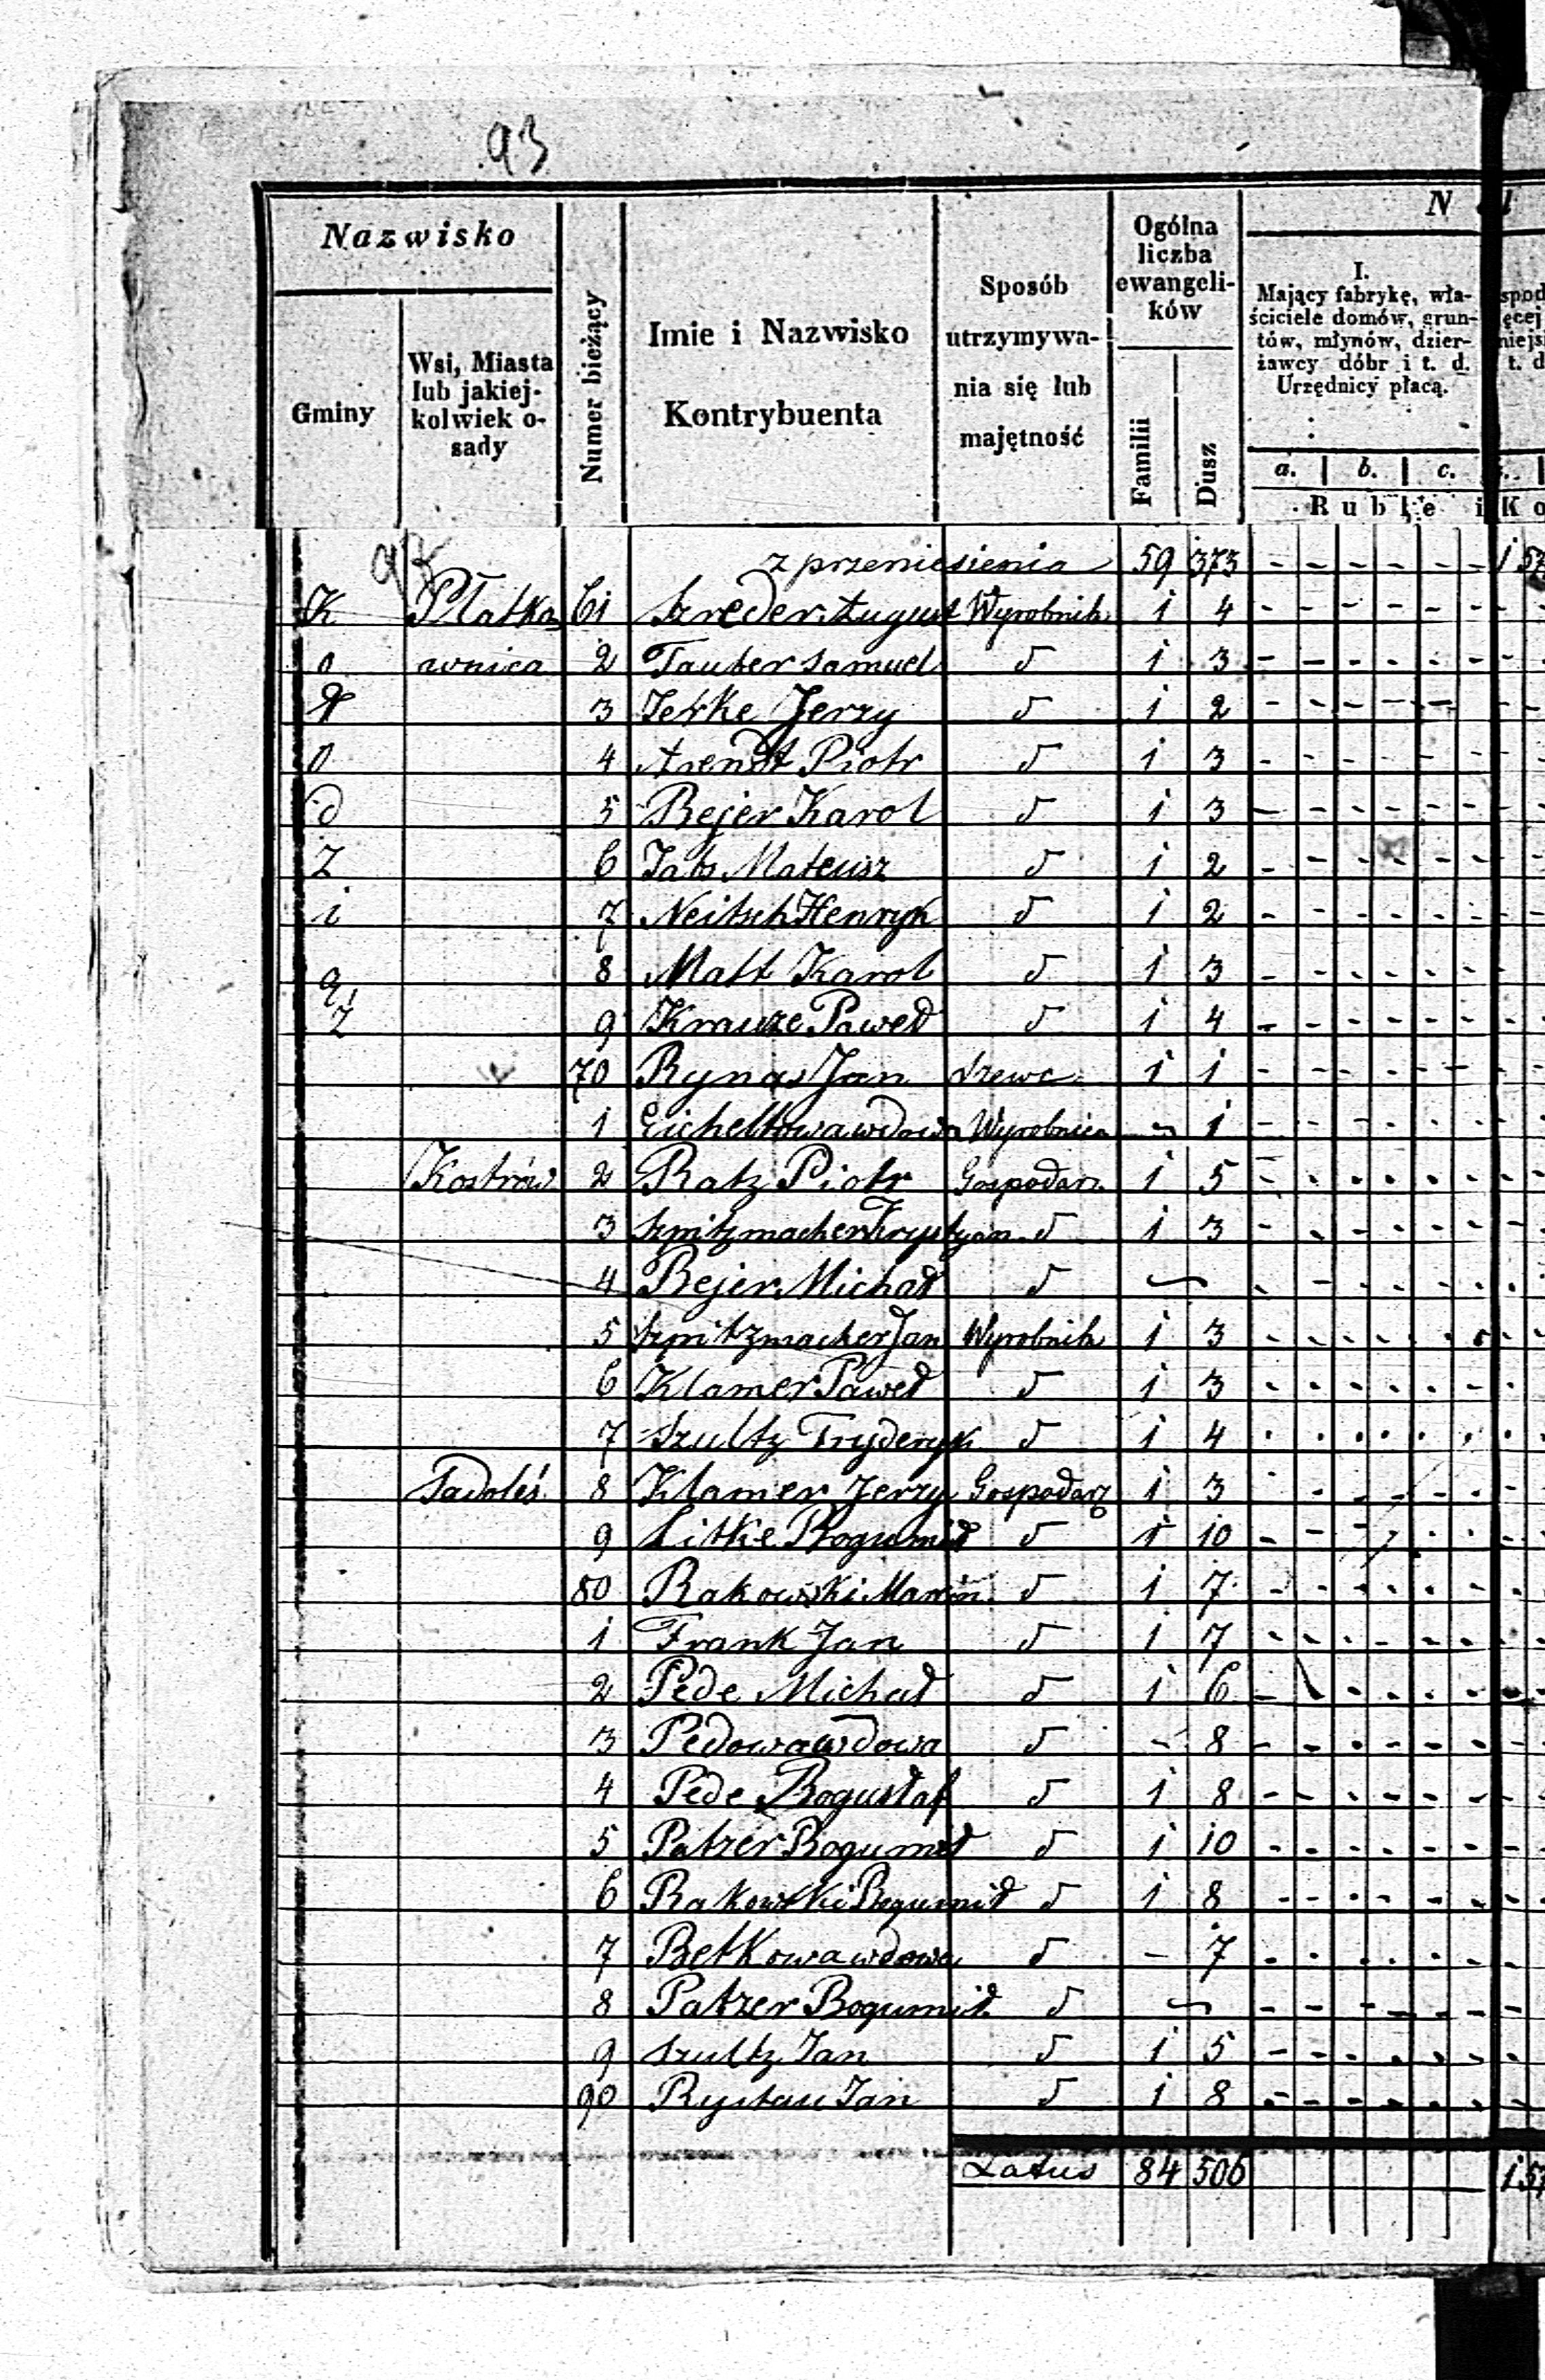 93
Nazwisko
Gminy
Wsi, Miasta lub jakiej-kolwiek o-sady
Numer bieżący
Imie i Nazwisko Kontrybuenta
Sposób utrzymywa-nia się lub majętność
Ogólna liczba ewangeli-ków
Familii
Dusz
N
I.
Mający fabrykę, wła-
ściciele domów, grun-
tów, młynów, dzier-
żawcy dóbr i t. d.
Urzędnicy płacą.
a. b. c.
Ruble i Ko
93
z przeniesienia 59 373 - - - - - - 1
K Płatko 61 Szreder August Wyrobnik 1 4 - - - - - -
o wnica 2 Tauber Samuel d 1 3 - - - - - -
3 Jeske Jerzy d 1 2 - - - - -
o 4 Arendt Piotr d 1 3 - - - - - -
d 5 Bejer Karol d 1 3 - - - - - -
z 6 Jabs Mateusz d 1 2 - - - - - -
i 7 Neitsch Henryk d 1 2 - - - - - -
ą 8 Matt Karol d 1 3 - - - - - -
ż 9 Krauze Paweł d 1 4 - - - - - -
70 Rynas Jan Szewc 1 1 - - - - - -
1 wdowa Wyrobnica - 1 - - - - - -
Kostrów 2 Ratz Piotr Gospodarz 1 5 - - - - - -
3 Szpitzmacher Krystyan d 1 3 - - -
4 Bejer Michał d - - - - - - -
5 Szpitzmacher Jan Wyrobnik 1 3 - - - - - -
6 Klamer Paweł d 1 3 - - - - - -
7 Szultz Fryderyk d 1 4 - - - - - -
Sadoleś 8 Klamer Jerzy Gospodarz 1 3 - - - - - -
9 Litke Bogumił d 1 10 - - - - - -
80 Rakowski Marcin d 1 7 - - - - - -
1 Frank Jan d 1 7 - - - - - -
2 Pede Michał d 1 6 - - - - - -
3 Pedowa wdowa d - 8 - - - - - -
4 Pede Bogusław d 1 8 - - - - - -
5 Patzer Bogumił d 1 10 - - - - - -
6 Rakowski Bogumił d 1 8 - - - - - -
7 Betkowa wdowa d - 7 - - - - -
8 Patzer Bogumił d - - - - - - -
9 Szultz Jan d 1 5 - - - - - -
90 Rystau Jan d 1 8 - - - - - -
Latus 84 506